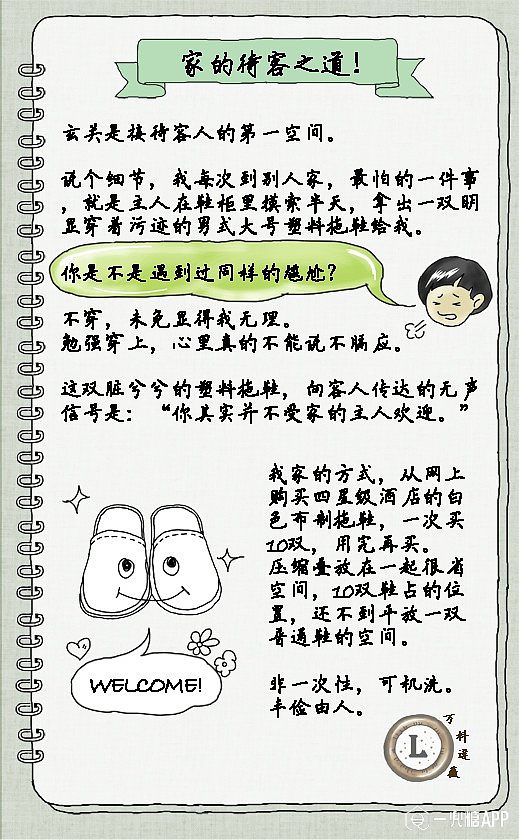 家的待客之道!
玄关是接待客人的第一空间。
说个细节，我每次到别人家，最怕的一件事
，就是主人在鞋柜里摸索半天，拿出一双明
显穿着污迹的男式大号塑料拖鞋给我。
你是不是遇到过同样的尴尬?
不穿，未免显得我无理。
勉强穿上，心里真的不能说不膈应。
这双脏兮兮的塑料拖鞋，向客人传达的无声
信号是：“你其实并不受家的主人欢迎。”
我家的方式，从网上
购买四星级酒店的白
色布制拖鞋，一次买
10双，用完再买。
压缩叠放在一起很省
空间，10双鞋占的位
置，还不到平放一双
普通鞋的空间。
WELCOME!
非一次性，可机洗。
丰俭由人。
L
万
科
逯
薇
一兜糖APP